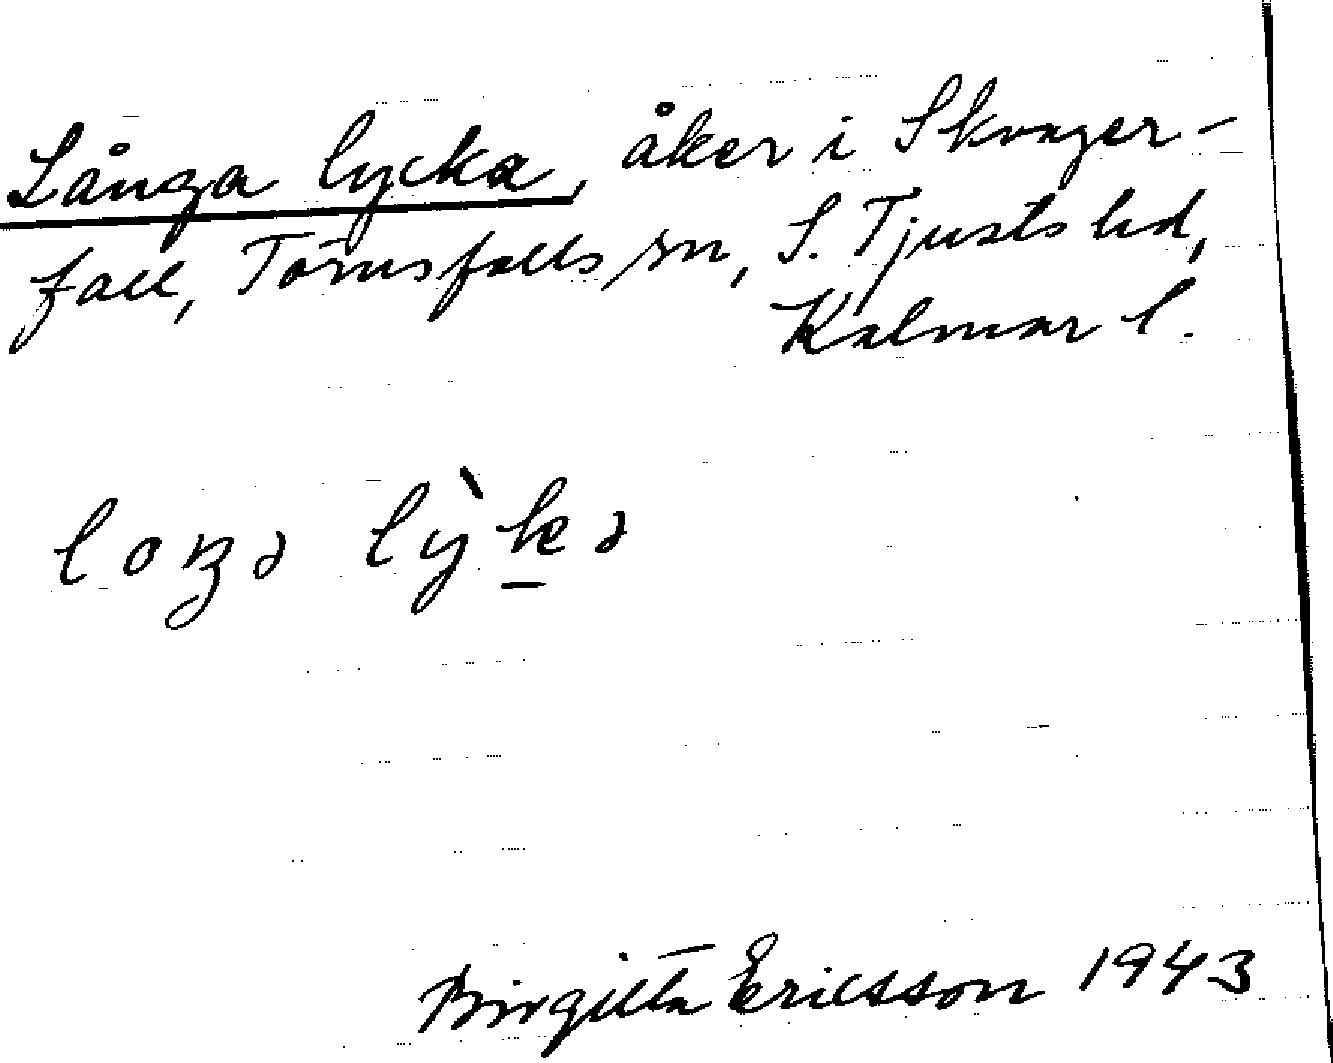 Långa lycka, åker i Skvager-
fall, Törnsfalls sn, S. Tjusts hd,
Kalmar l.
loŋə lỳkə
Birgitta Ericsson 1943